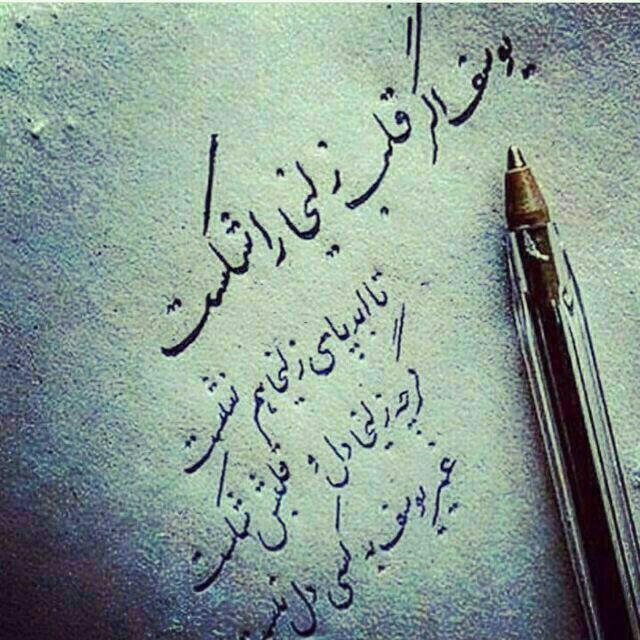 یوسف اگر قلب زلیخا را شکست
تا ابد پای زلیخا هم نشست
گرچه زلیخا دل قلبش شکست
غیر یوسف به کسی دل نبست